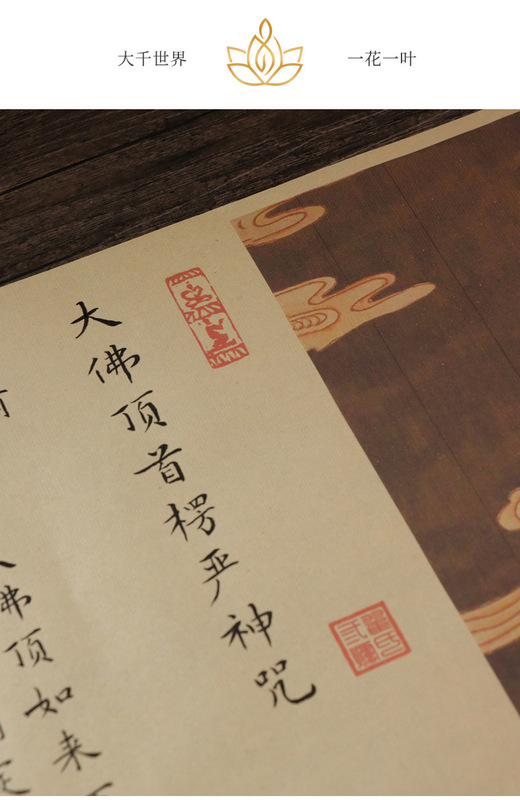 大千世界
一花一叶
大佛顶首楞严神咒
佛顶如来